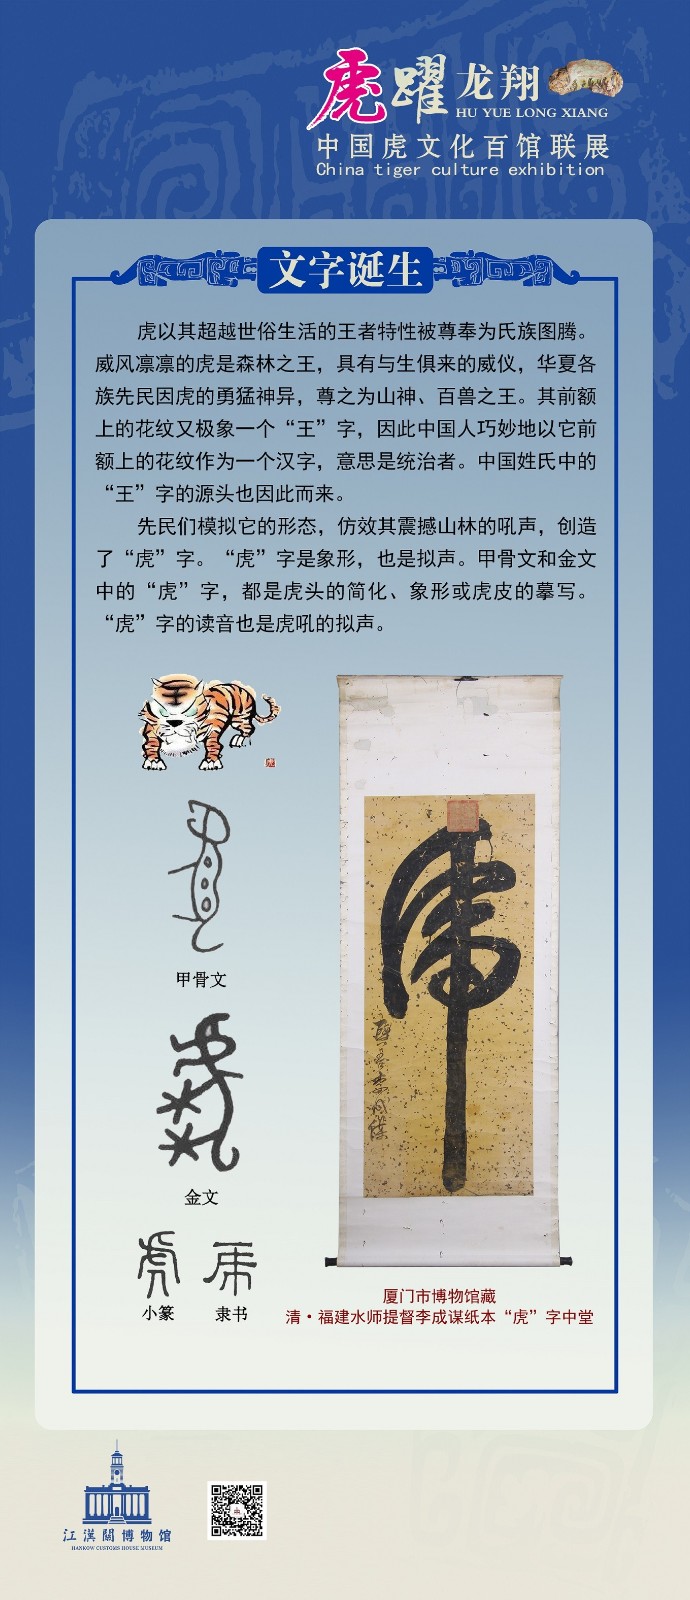 虎躍龙翔
HU YUE LONG XIANG
中国虎文化百馆联展
China tiger culture exhibition
文字诞生
虎以其超越世俗生活的王者特性被尊奉为氏族图腾。
威风凛凛的虎是森林之王，具有与生俱来的威仪，华夏各
族先民因虎的勇猛神异，尊之为山神、百兽之王。其前额
上的花纹又极象一个“王”字，因此中国人巧妙地以它前
额上的花纹作为一个汉字，意思是统治者。中国姓氏中的
“王”字的源头也因此而来。
先民们模拟它的形态，仿效其震撼山林的吼声，创造
了“虎”字。“虎”字是象形，也是拟声。甲骨文和金文
中的“虎”字，都是虎头的简化、象形或虎皮的摹写。
“虎”字的读音也是虎吼的拟声。
王
甲骨文
金文
虎
虎
小篆
隶书
虎
厦门市博物馆藏
清·福建水师提督李成谋纸本“虎”字中堂
江漢關博物馆
HANKOW CUSTOMS HOUSE MUSEUM